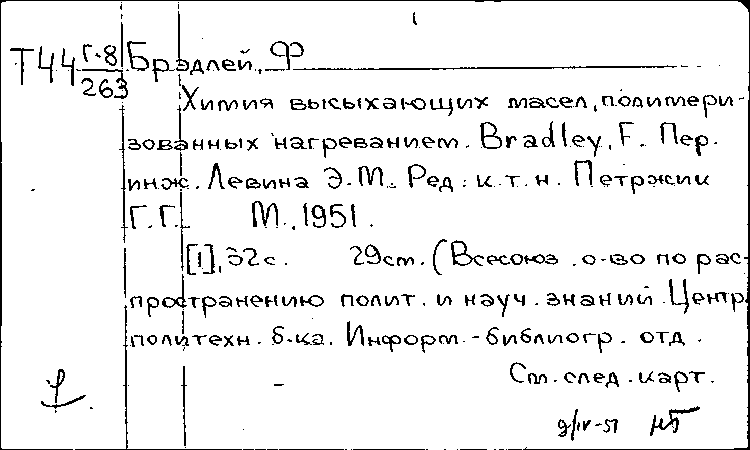 Т44 Г-8/263 Брэдлей, Ф
Химия высыхающих масел, полимери-
зованных нагреванием. Bradley, F. Пер.
инж. Левина Э.М. Ред. к.т.н. Петржик
Г.Г. М., 1951.
[1], 32с. 29см. (Всесоюз. о-во по рас-
пространению полит. и науч. знаний. Центр.
политехн. б-ка. Информ.-библиогр. отд.
См. след. карт.